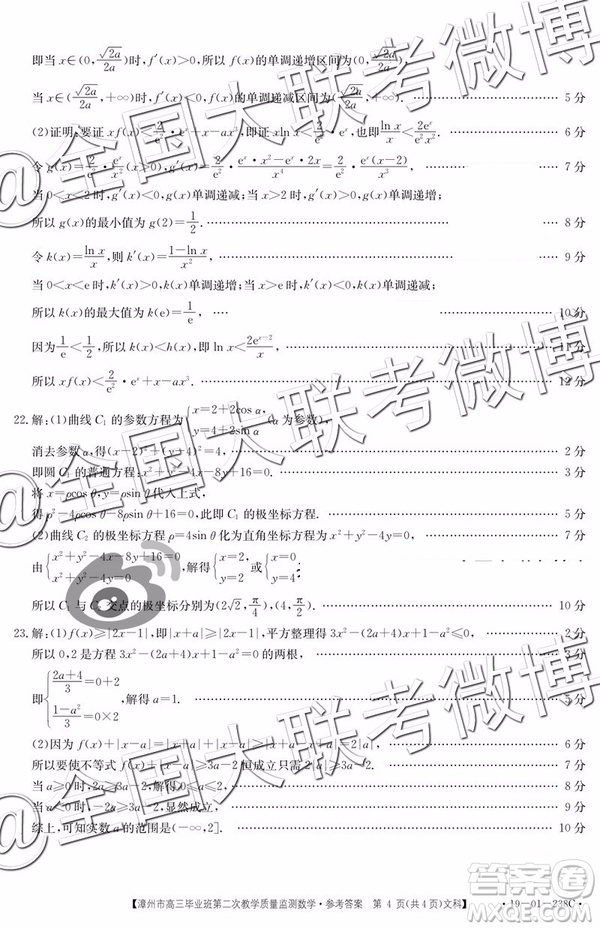 即当 x∈(0,√2a/2a)时,f′(x)>0,所以 f(x)的单调递增区间为(0,√2a/2a),
当 x∈(√2a/2a,+∞)时,f′(x)<0,所以 f(x)的单调递减区间为(√2a/2a,+∞). 5 分
(2)证明:要证 xf(x)<2/e²·eˣ+x−ax³,即证 xln x<2/e²·eˣ,也即 ln x/x<2eˣ/e²x². 6 分
令 g(x)=2/e²·eˣ/x²(x>0),则 g′(x)=2/e²·eˣ·x²−eˣ·2x/x⁴ 7 分
当 0<x<2时,g′(x)<0,g(x)单调递减;当 x>2 时,g′(x)>0,g(x)单调递增;
所以 g(x)的最小值为 g(2)=1/2. 8 分
令 k(x)=ln x/x,则 k′(x)=1−ln x/x². 9 分
当 0<x<e 时,k′(x)>0,k(x)单调递增;当 x>e 时,k′(x)<0,k(x)单调递减;
所以 k(x)的最大值为 k(e)=1/e, 10 分
因为 1/e<1/2,所以 k(x)<h(x),即 ln x/x<2eˣ⁻²/x². 11 分
所以 xf(x)<2/e²·eˣ+x−ax³. 12 分
22.解:(1)曲线 C₁ 的参数方程为{x=2+2cos α, y=4+2sin α (α 为参数),
消去参数 α,得(x−2)²+(y−4)²=4, 2 分
即圆 C₁ 的普通方程:x²+y²−4x−8y+16=0. 3 分
将 x=ρcos θ,y=ρsin θ 代入上式,
得 ρ²−4ρcos θ−8ρsin θ+16=0,此即 C₁ 的极坐标方程. 5 分
(2)曲线 C₂ 的极坐标方程 ρ=4sin θ 化为直角坐标方程为 x²+y²−4y=0,
由{x²+y²−4x−8y+16=0 x²+y²−4y=0,解得{x=2, y=2 或{x=0, y=4.
所以 C₁ 与 C₂ 交点的极坐标分别为(2√2,π/4),(4,π/2). 10 分
23.解:(1)f(x)≥|2x−1|,即|x+a|≥|2x−1|,平方整理得 3x²−(2a+4)x+1−a²≤0, 2 分
所以 0,2 是方程 3x²−(2a+4)x+1−a²=0 的两根,
即{2a+4/3=0+2 1−a²/3=0×2,解得 a=1. 5 分
(2)因为 f(x)+|x−a|=|x+a|+|x−a|≥|(x+a)−(x−a)|=2|a|, 6 分
所以要使不等式 f(x)+|x−a|≥3a−2 恒成立只需 2|a|≥3a−2. 7 分
当 a≥0 时,2a≥3a−2,解得 0≤a≤2, 8 分
当 a<0 时,−2a≥3a−2,显然成立, 9 分
综上,可知实数 a 的范围是(−∞,2]. 10 分
【漳州市高三毕业班第二次教学质量监测数学·参考答案 第 4 页(共 4 页)文科】
·19−01−238C·
@全国大联考微博
@全国大联考微博
@全国大联考微博
答案圈